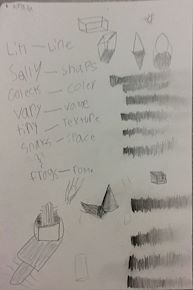 Lin - Line
Sally - shape
Colects - color
Vary - value
tiny - Texture
snakes - space
frogs - form